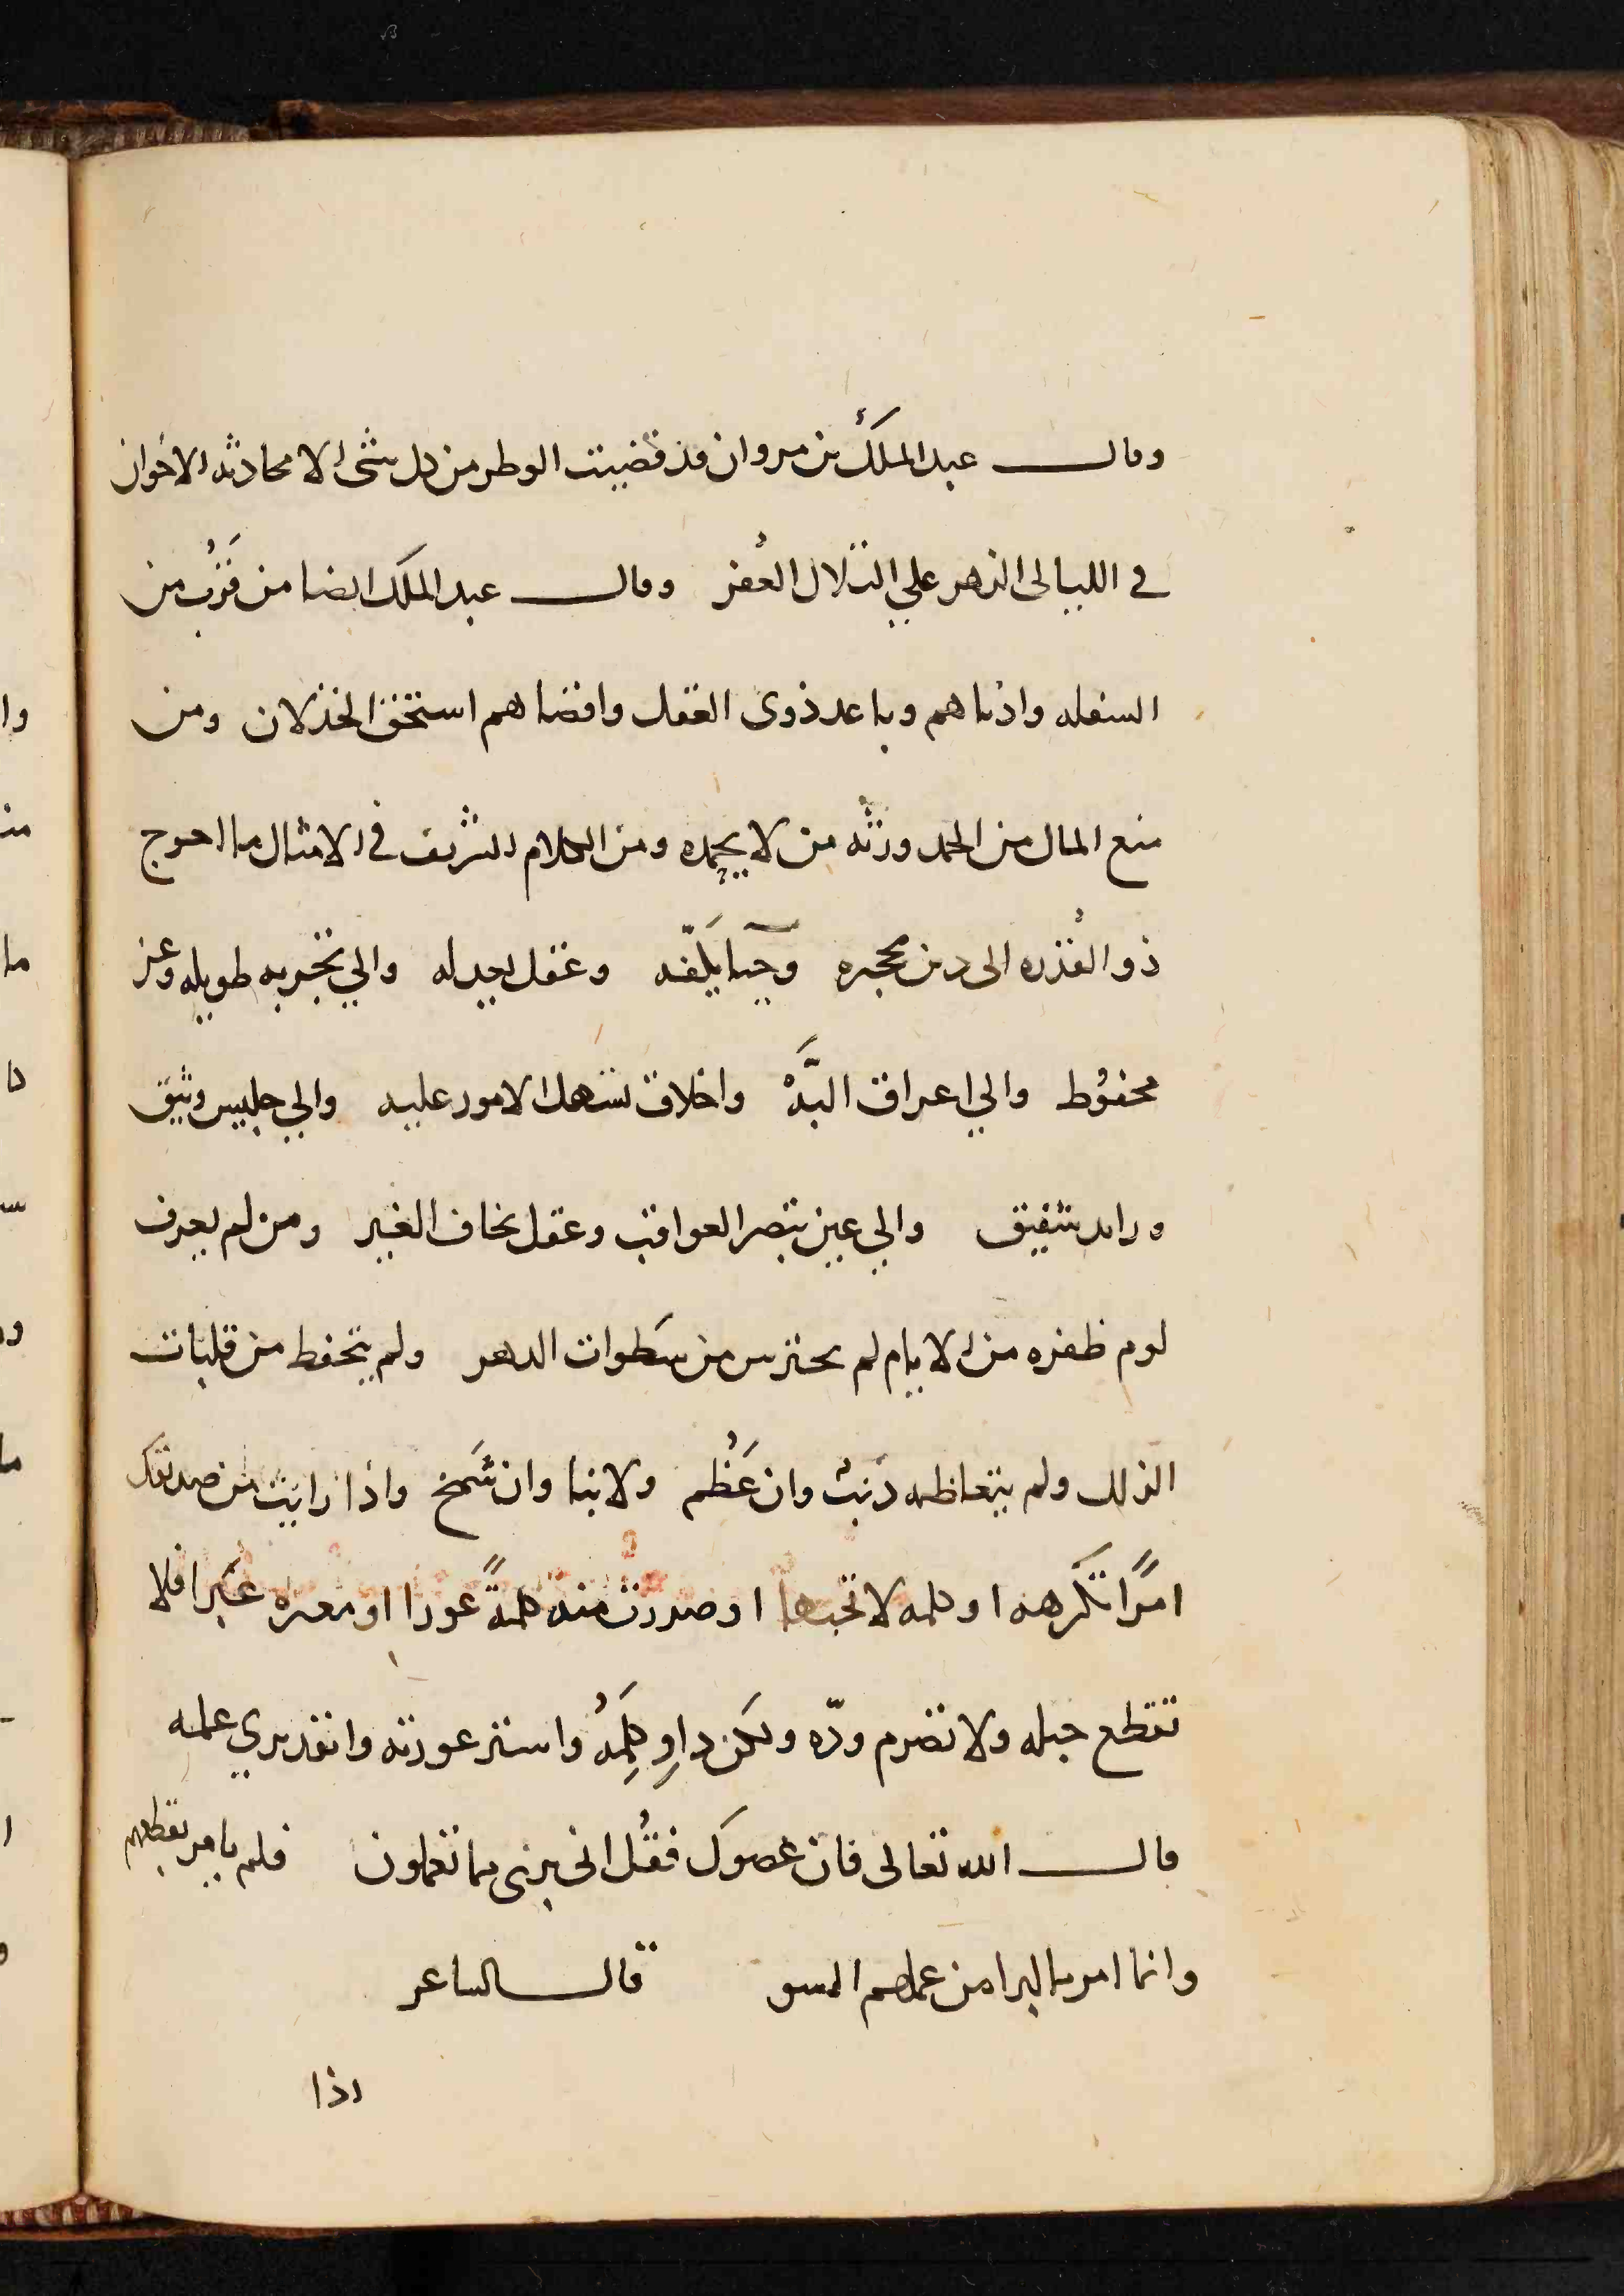 وقال عبد الملك بن مروان قد قضيت الوطر من كل شى الا محادثه الاخوان
في الليالى الزهر علي التلال العُفر وقال عبد الملك ايضا من قَرُب من
السفله وادناهم وباعد ذوى العقل واقصاهم استحق الخذلان ومن
منع المال من الحمد ورثه من لا يحمده ومن الكلام الشريف في الامثال ما احوج
ذو القُدره الى دين يحجره وحيا يكفه وعقل يعدله والي تجربه طويله وعز
محفوظ والي اعراق اليَّه واخلاق تسهل الامور عليه والي جليس وثيق
ورايد شفيق والي عين تبصر العواقب وعقل يخاف الغير ومن لم يعرف
لوم ظفره من الايام لم يحترس من سَطوات الدهر ولم يتحفظ من فلتات
الزلل ولم يتعاظمه ذنب وان عَظُم ولا ثنا وان شَمخ واذا رايت من صديقك
امرًا تكرهه او كلمه لا تحبها او صدرت منه كلمةً عورا او معىره غبرا فلا
تقطع حبله ولا تصرم ودّه ولكن داوِ كَلِمَهُ واستر عورته وابقه وابري عمله
قال الله تعالى فان عصوك فقُل انى برى مما تعملون فلم يامر بقطعهم
وانما امر بالبرا من عملهم السو قال الشاعر
اذا